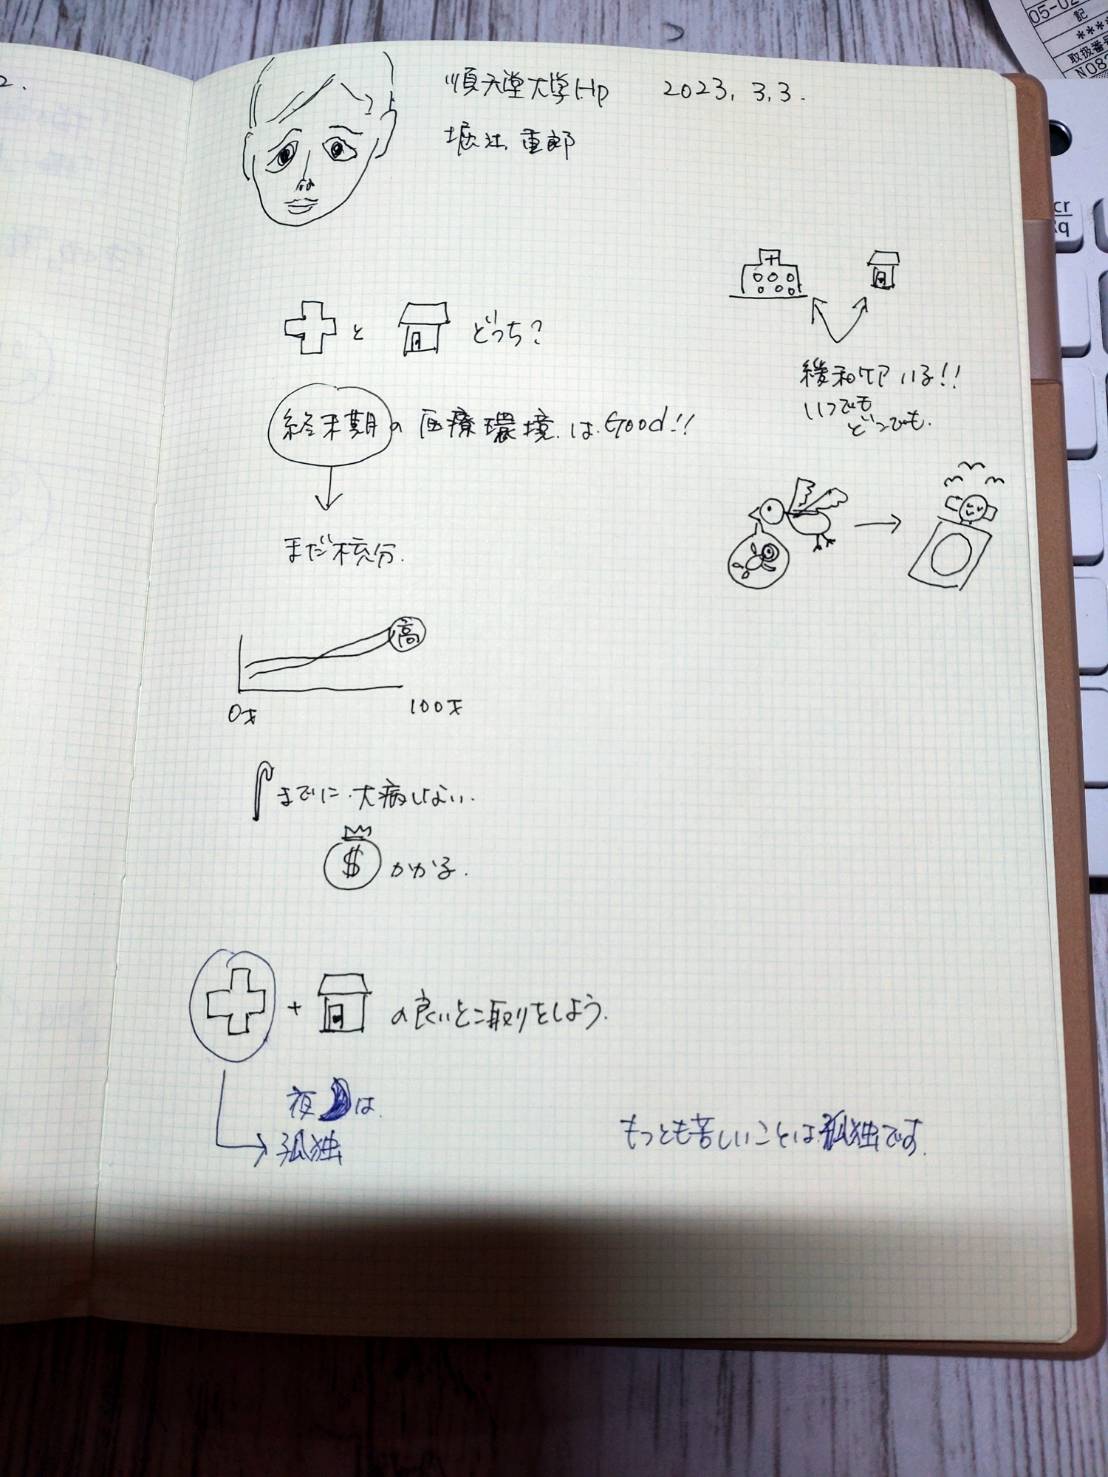 順天堂大学Hp 2023.3.3.
堀江 重郎
と どっち?
終末期の 医療環境.は.Good!!
まだ不充分.
高
0才 100才
までに.大病しない.
$ かかる.
+ の良いとこ取りをしよう.
夜 は.
孤独
緩和ケア いる!!
いつでも
どこでも.
もっとも苦しいことは孤独です.
2.
05-02
記
****
取扱番号
N087